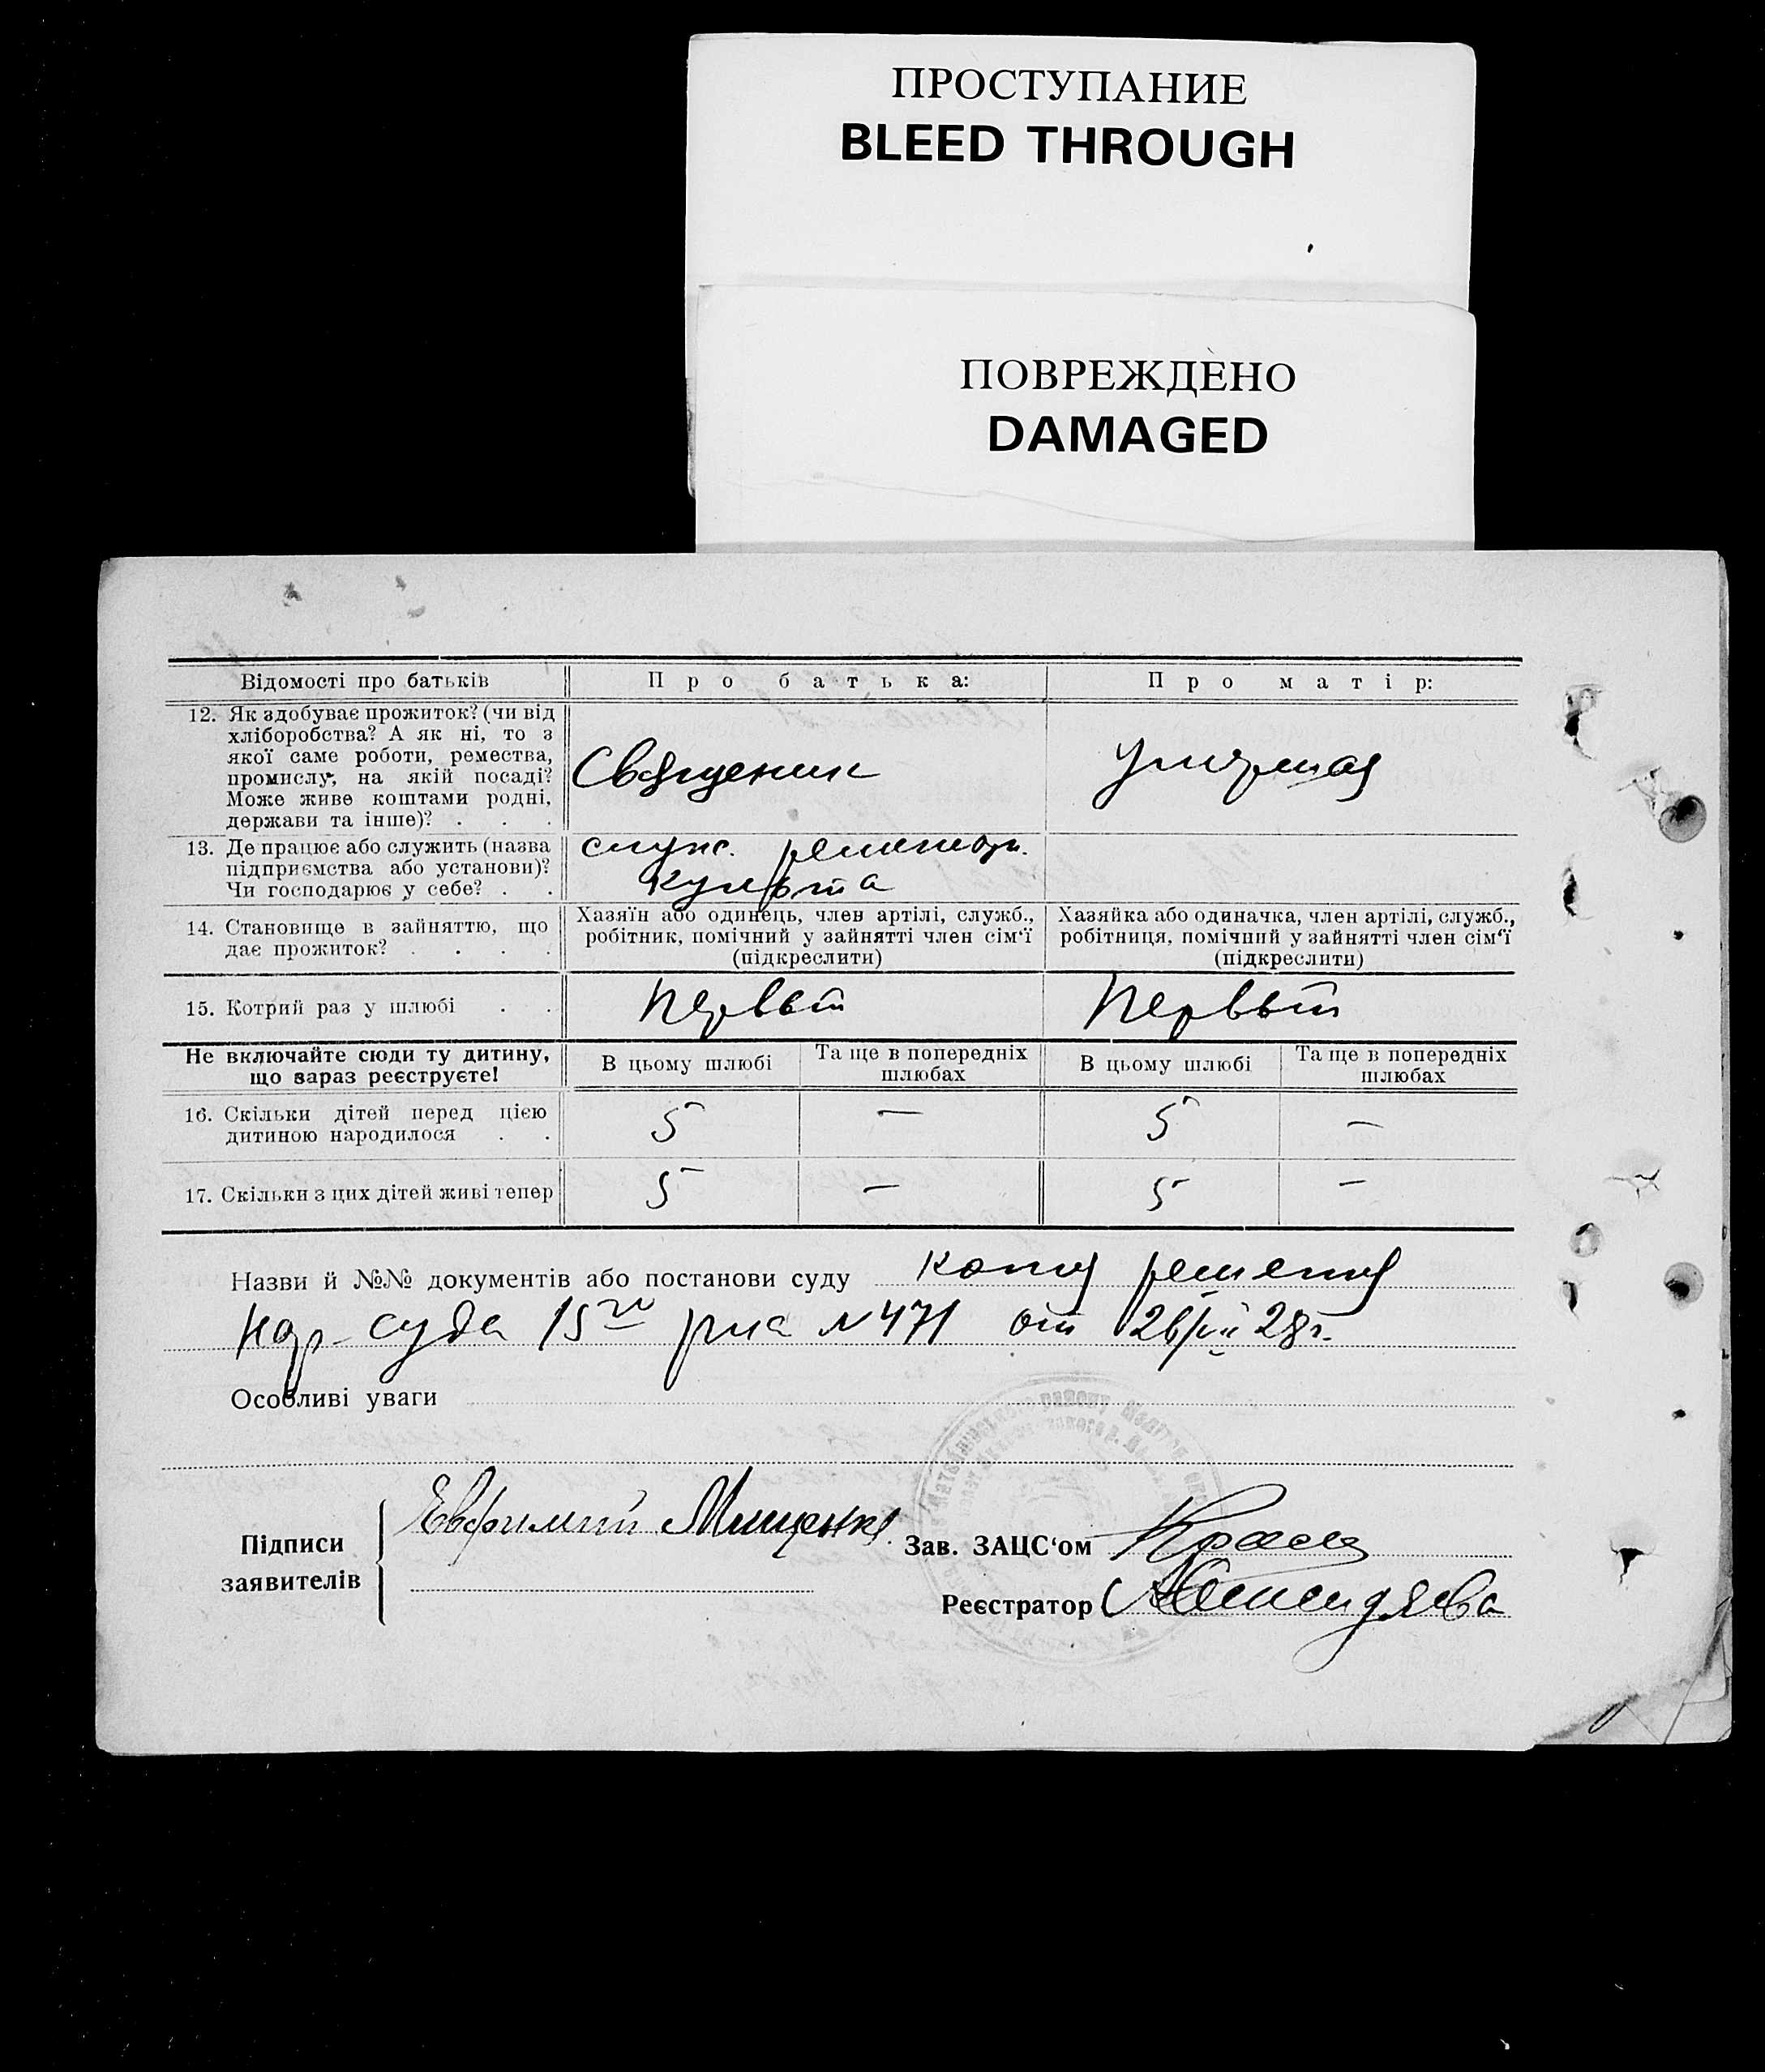 ПРОСТУПАНИЕ
BLEED THROUGH
ПОВРЕЖДЕНО
DAMAGED
Відомості про батьків
Про батька:
Про матір:
12. Як здобуває прожиток? (чи від
хліборобства? А як ні, то з
якої саме роботи, ремества,
промислу, на якій посаді?
Може живе коштами родні,
держави та інше)? . . .
Священик
13. Де працює або служить (назва
підприємства або установи)?
Чи господарює у себе? . .
служ.
культа
14. Становище в зайняттю, що
дає прожиток? . . . .
Хазяїн або одинець, член артілі, служб.,
робітник, помічний у зайнятті член сім'ї
(підкреслити)
Хазяйка або одиначка, член артілі, служб.,
робітниця, помічний у зайнятті член сім'ї
(підкреслити)
15. Котрий раз у шлюбі . .
Первый
Первый
Не включайте сюди ту дитину,
що зараз реєструєте!
В цьому шлюбі
Та ще в попередніх
шлюбах
В цьому шлюбі
Та ще в попередніх
шлюбах
16. Скільки дітей перед цією
дитиною народилося . .
5 — 5 —
17. Скільки з цих дітей живі тепер
5 — 5 —
Назви й №№ документів або постанови суду
нар. суда 15го N 471 от 28г.
Особливі уваги
Підписи
заявителів
Евфимий Мищенко
Зав. ЗАЦС'ом
Реєстратор